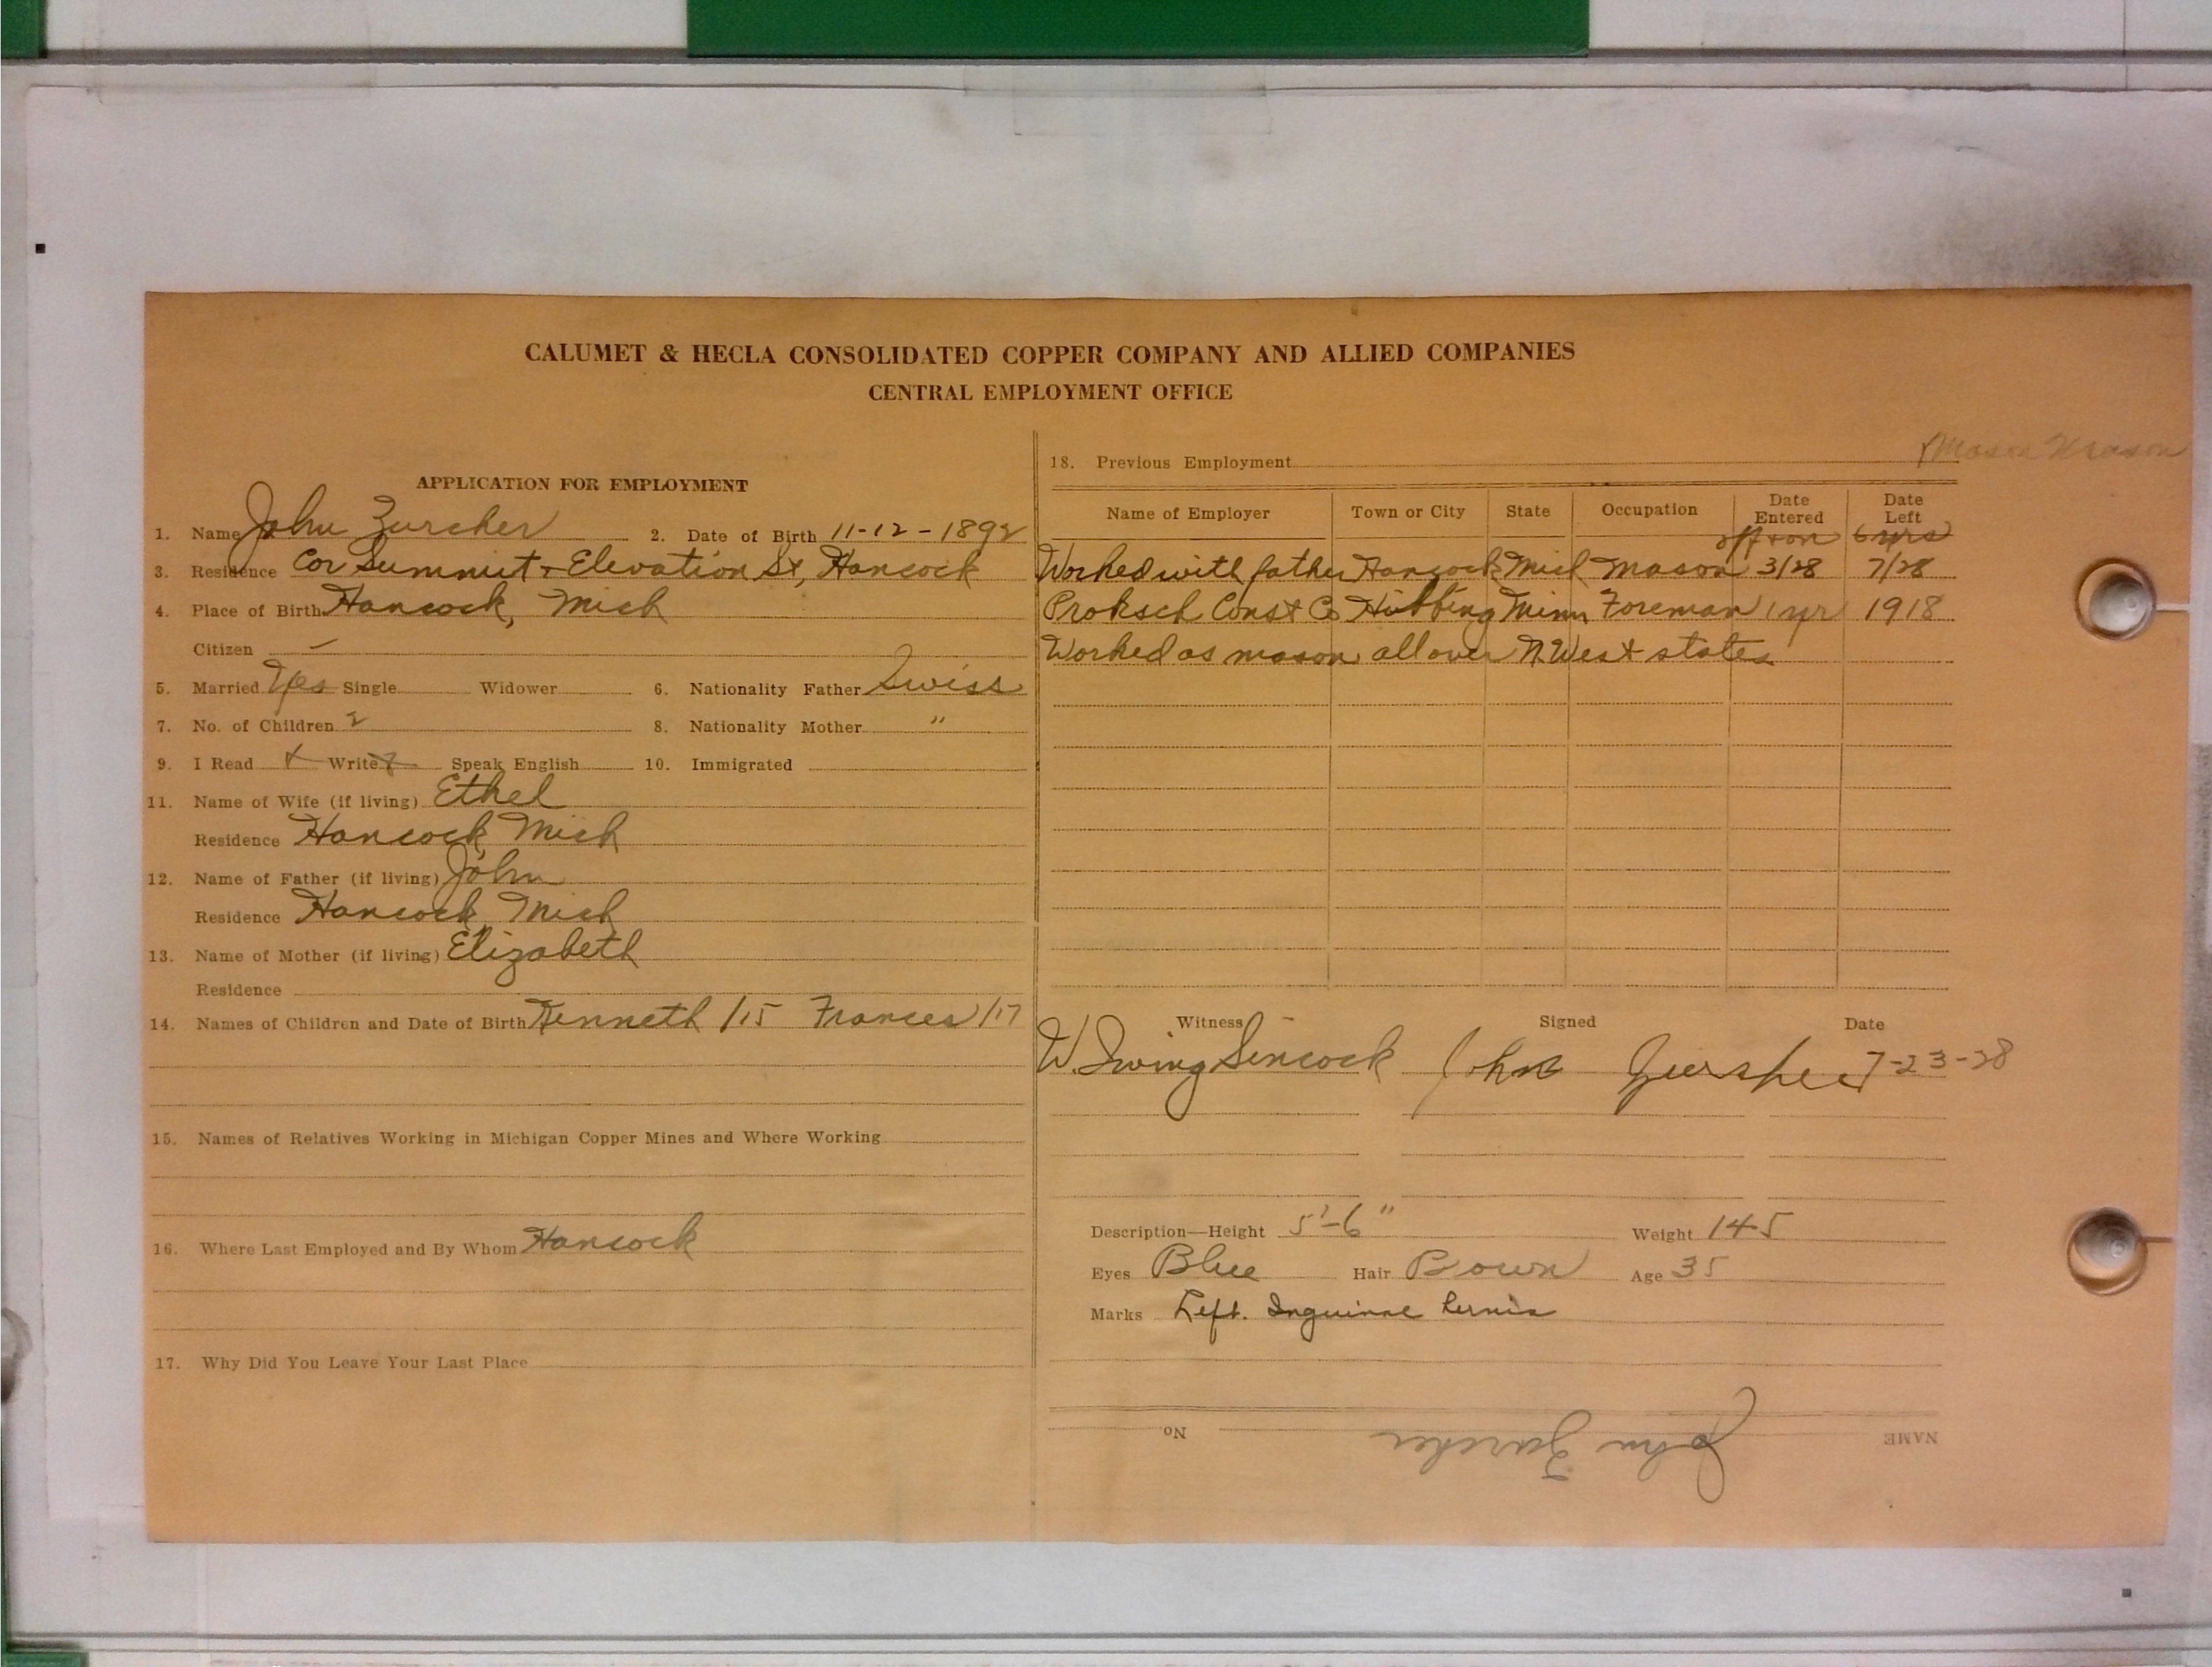 CALUMET & HECLA CONSOLIDATED COPPER COMPANY AND ALLIED COMPANIES
CENTRAL EMPLOYMENT OFFICE
APPLICATION FOR EMPLOYMENT
1. Name John Zurcher 2. Date of Birth 11-12-1892
3. Residence Cor Summit + Elevation St, Hancock
4. Place of Birth Hancock, Mich
Citizen —
5. Married Yes Single Widower 6. Nationality Father Swiss
7. No. of Children 2 8. Nationality Mother "
9. I Read x Write x Speak English 10. Immigrated
11. Name of Wife (if living) Ethel
Residence Hancock, Mich
12. Name of Father (if living) John
Residence Hancock, Mich
13. Name of Mother (if living) Elizabeth
Residence
14. Names of Children and Date of Birth Kenneth /15 Frances /17
15. Names of Relatives Working in Michigan Copper Mines and Where Working
16. Where Last Employed and By Whom Hancock
17. Why Did You Leave Your Last Place
Mason
18. Previous Employment
Name of Employer Town or City State Occupation Date Entered Date Left
off + on 6 yrs
Worked with father Hancock Mich Mason 3/28 7/28
Proksch Const Co Hibbing Minn Foreman 1 yr 1918
Worked as mason all over N. West states
Witness Signed Date
W. Irving Sincock John Zurcher 7-23-28
Description—Height 5'-6" Weight 145
Eyes Blue Hair Brown Age 35
Marks Left. Inguinal hernia
NAME John Zurcher No